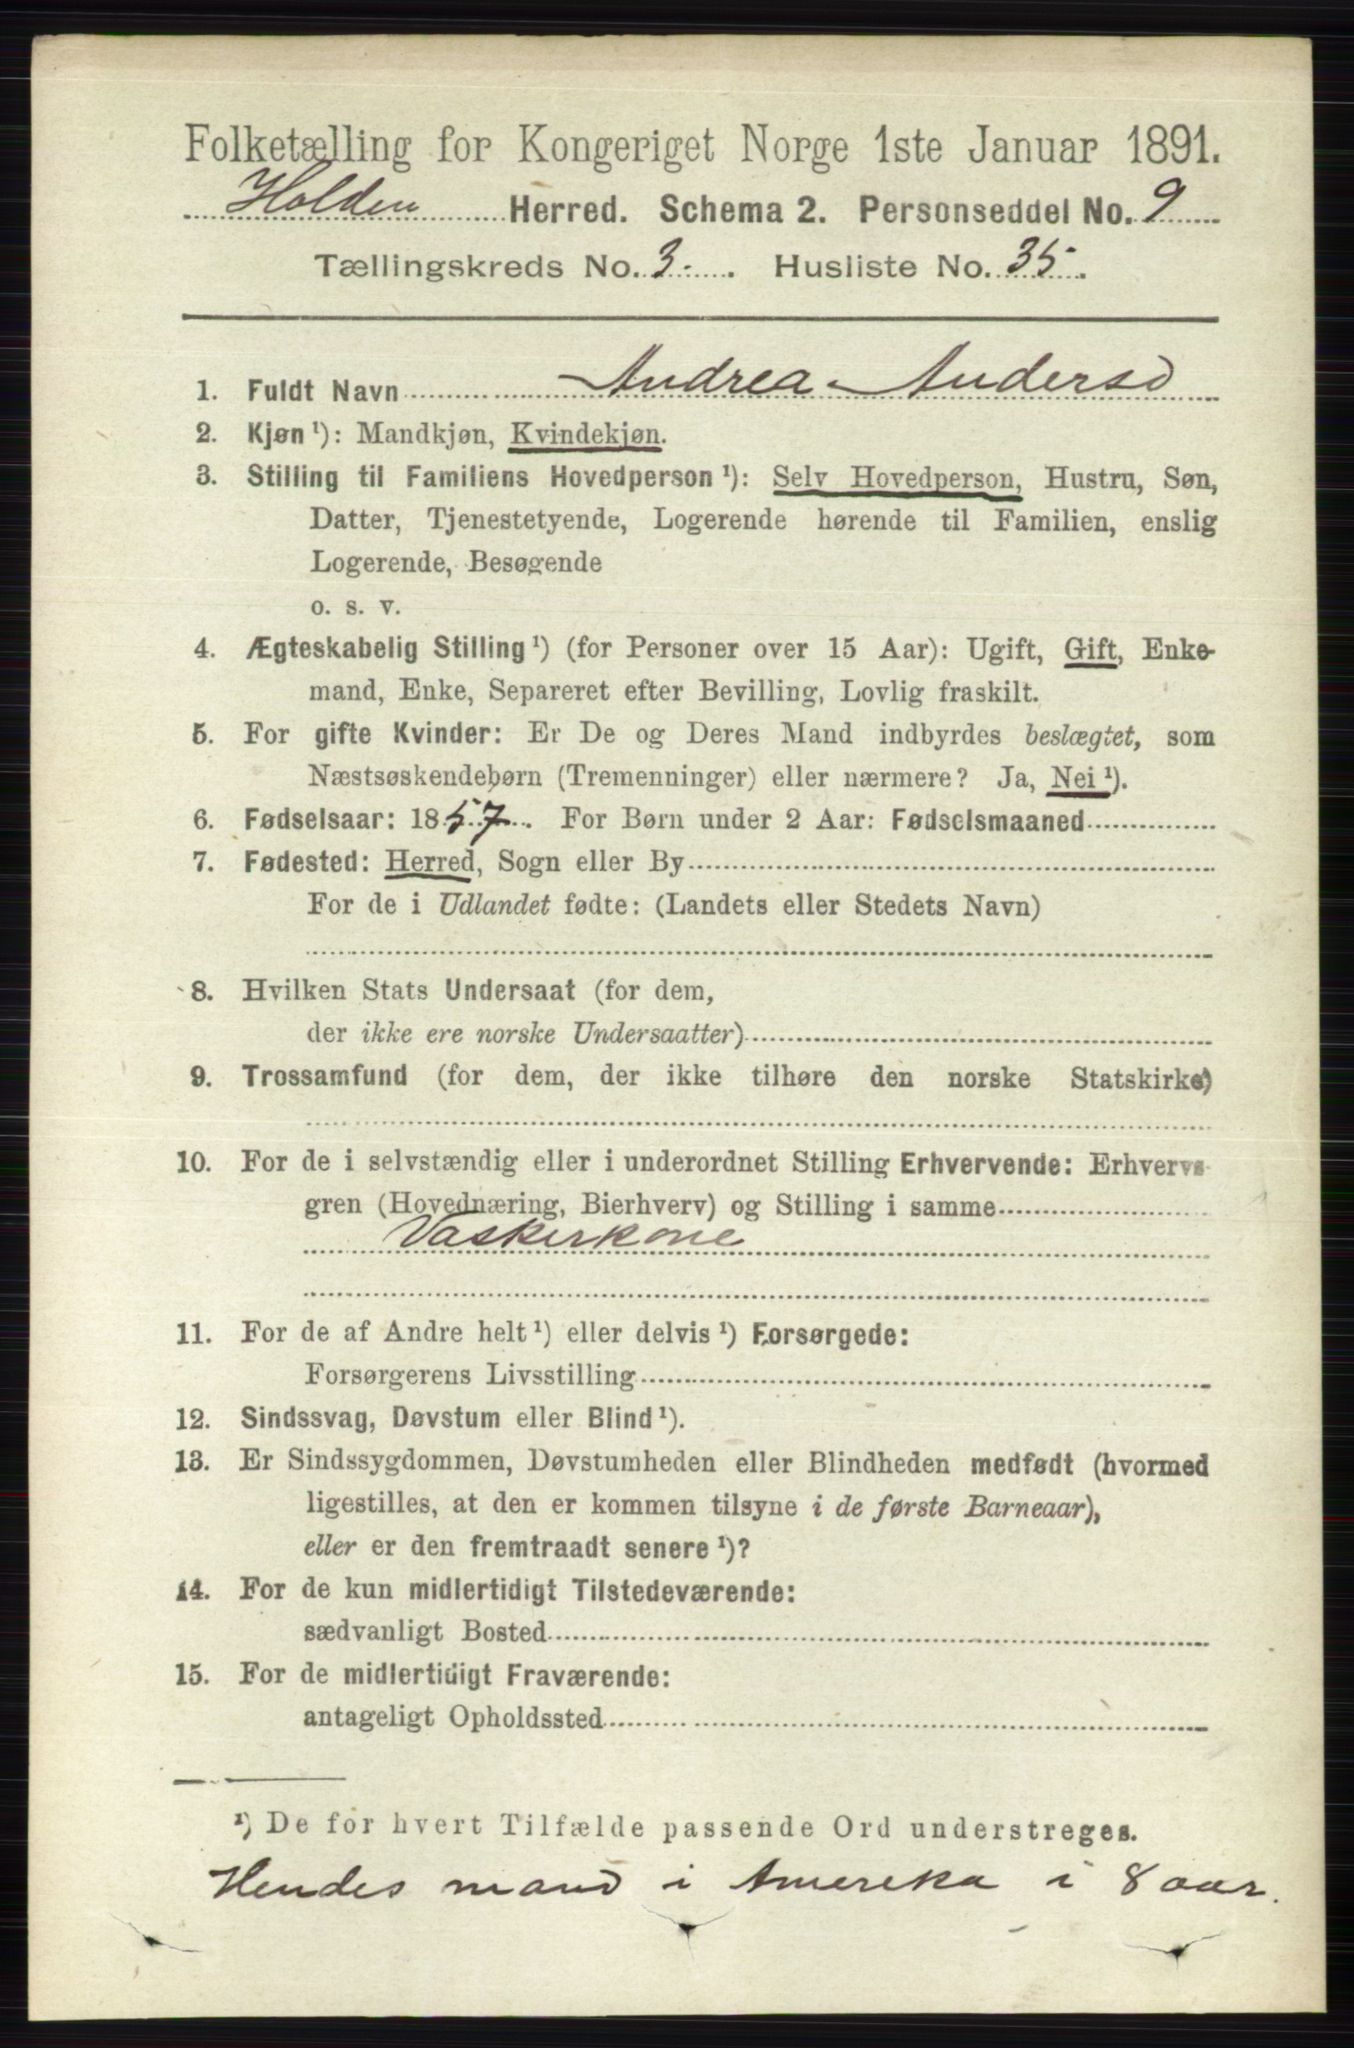 Folketælling for Kongeriget Norge 1ste Januar 1891.
Holden Herred. Schema 2. Personseddel No. 9
Tællingskreds No. 3. Husliste No. 35.
1. Fuldt Navn Andrea Andersd
2. Kjøn ¹): Mandkjøn, Kvindekjøn.
3. Stilling til Familiens Hovedperson ¹): Selv Hovedperson, Hustru, Søn,
Datter, Tjenestetyende, Logerende hørende til Familien, enslig
Logerende, Besøgende
o. s. v.
4. Ægteskabelig Stilling ¹) (for Personer over 15 Aar): Ugift, Gift, Enke-
mand, Enke, Separeret efter Bevilling, Lovlig fraskilt.
5. For gifte Kvinder: Er De og Deres Mand indbyrdes beslægtet, som
Næstsøskendebørn (Tremenninger) eller nærmere? Ja, Nei ¹).
6. Fødselsaar: 1857. For Børn under 2 Aar: Fødselsmaaned
7. Fødested: Herred, Sogn eller By
For de i Udlandet fødte: (Landets eller Stedets Navn)
8. Hvilken Stats Undersaat (for dem,
der ikke ere norske Undersaatter)
9. Trossamfund (for dem, der ikke tilhøre den norske Statskirke)
10. For de i selvstændig eller i underordnet Stilling Erhvervende: Erhvervs-
gren (Hovednæring, Bierhverv) og Stilling i samme
Vaskerkone
11. For de af Andre helt ¹) eller delvis ¹) Forsørgede:
Forsørgerens Livsstilling
12. Sindssvag, Døvstum eller Blind ¹).
13. Er Sindssygdommen, Døvstumheden eller Blindheden medfødt (hvormed
ligestilles, at den er kommen tilsyne i de første Barneaar),
eller er den fremtraadt senere ¹)?
14. For de kun midlertidigt Tilstedeværende:
sædvanligt Bosted
15. For de midlertidigt Fraværende:
antageligt Opholdssted
¹) De for hvert Tilfælde passende Ord understreges.
Hendes mand i Amereka i 8 aar.